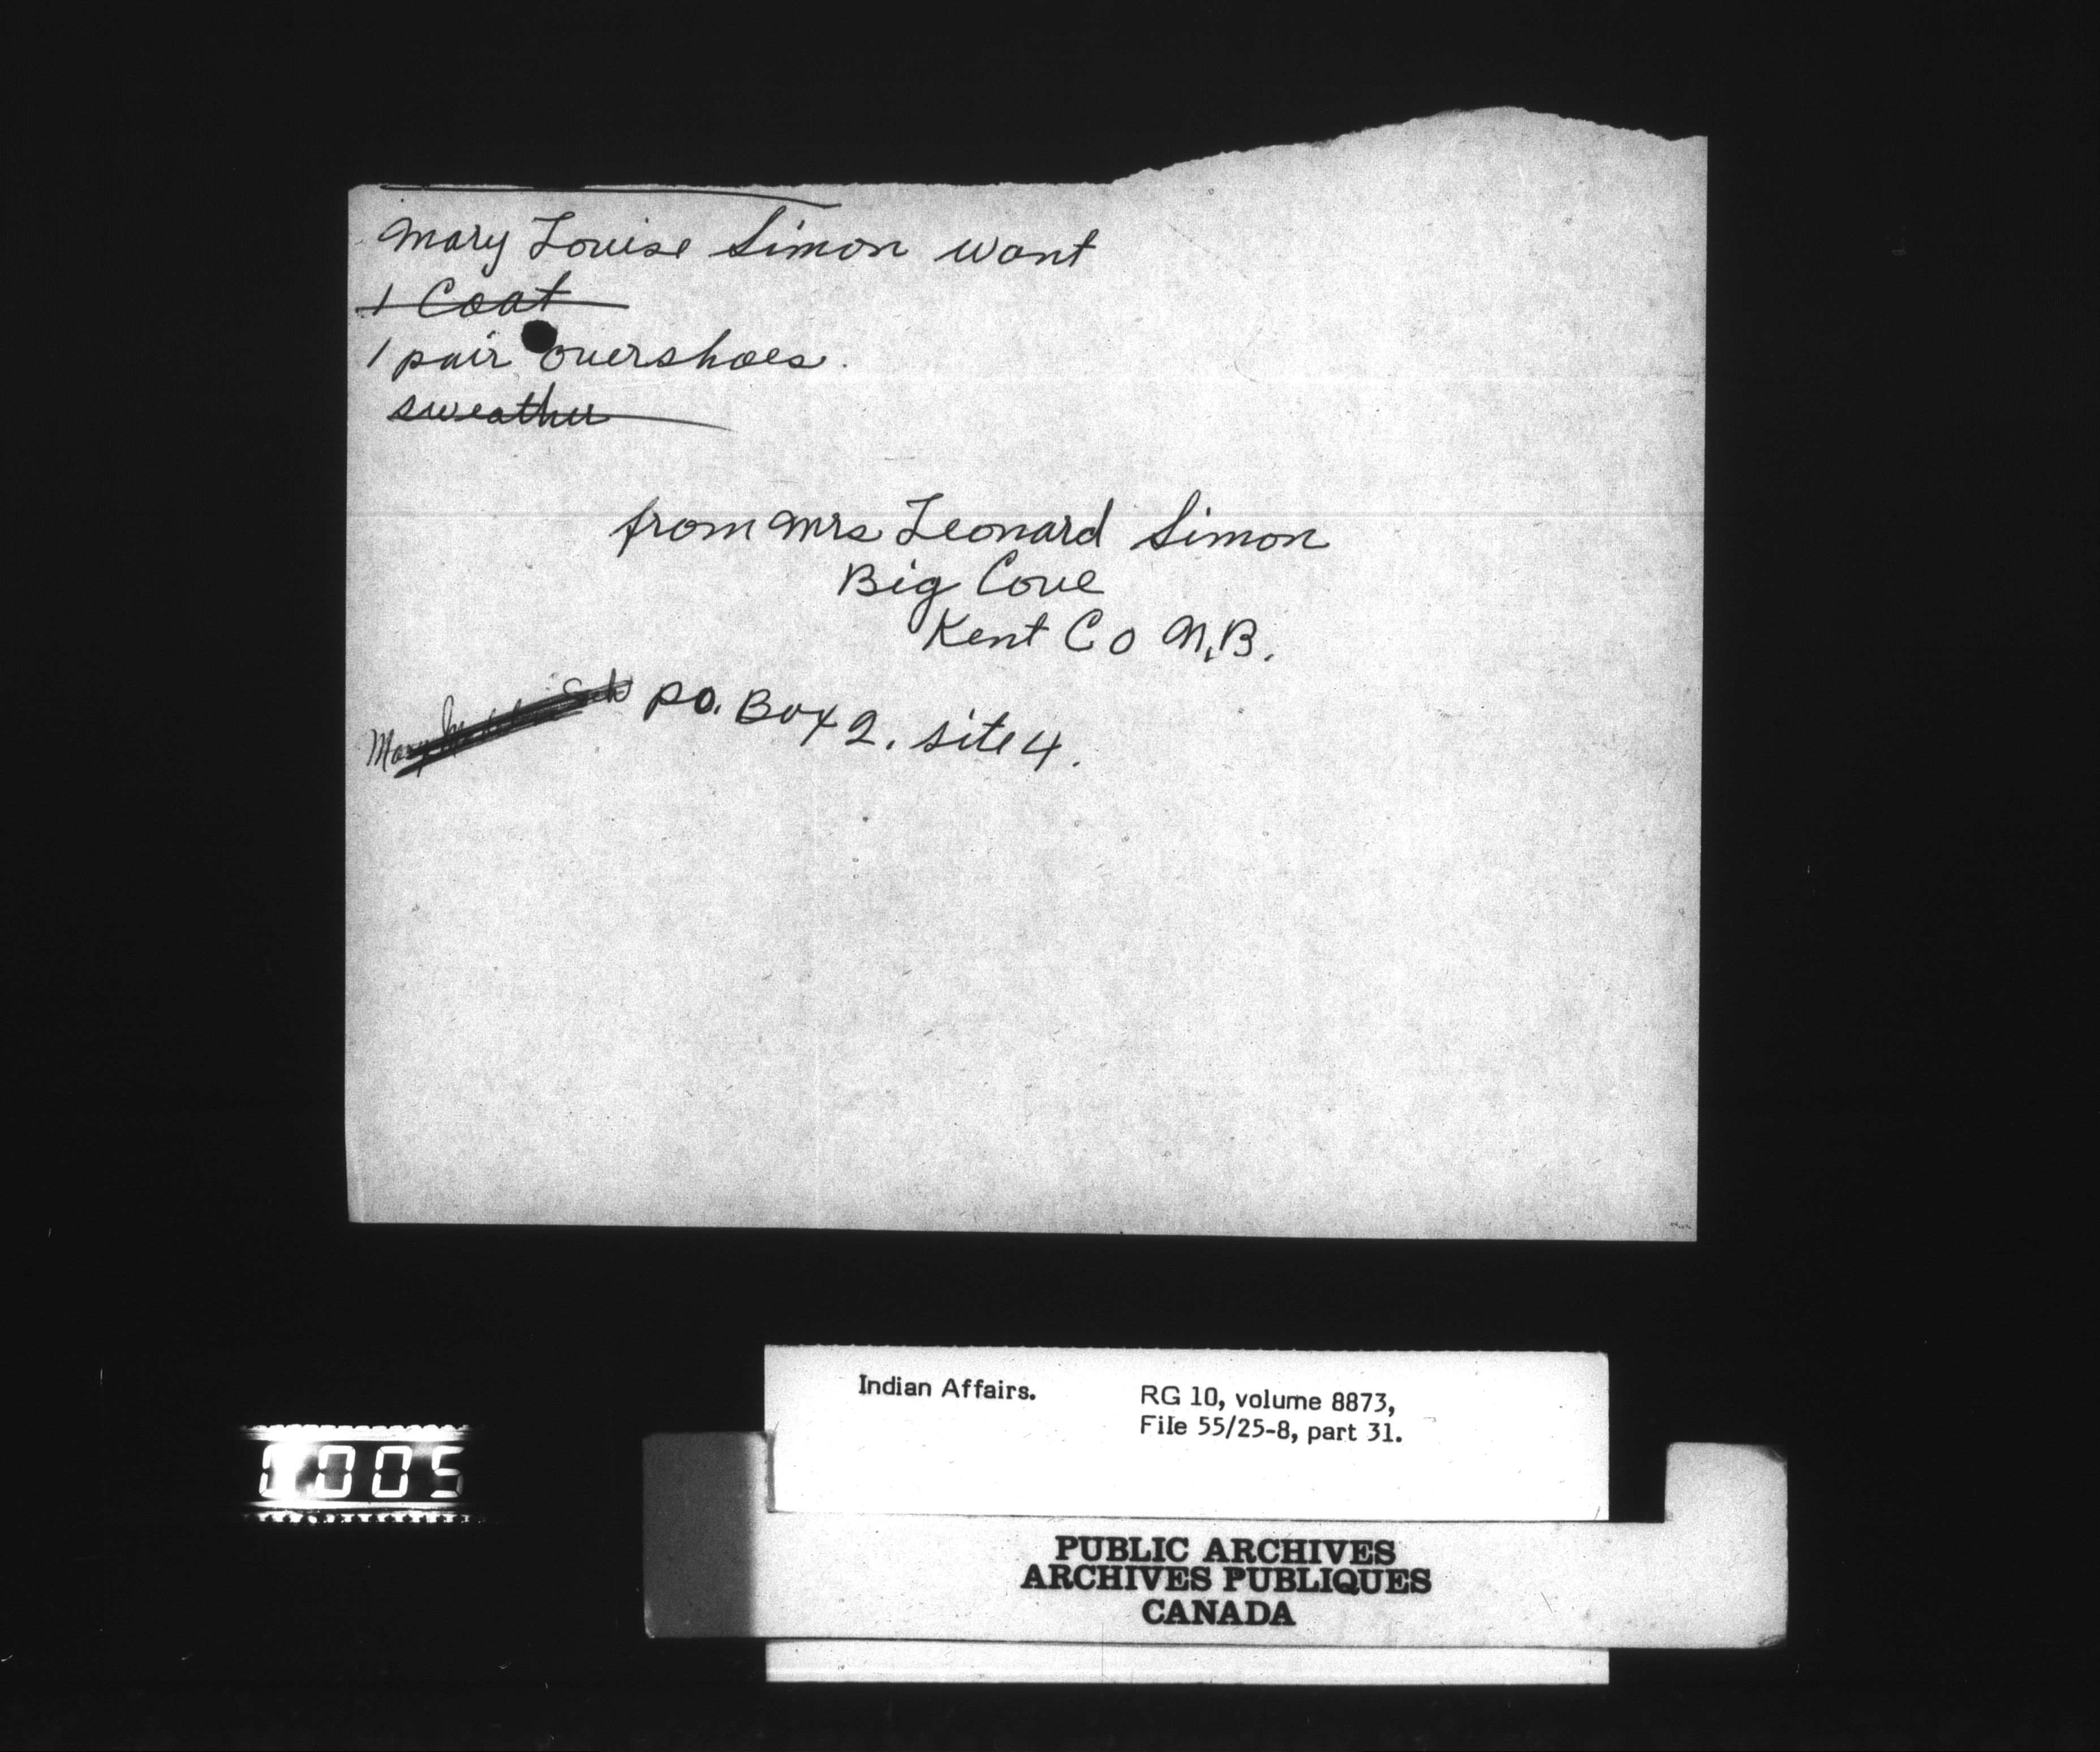 Mary Louise Simon want
1 Coat
1 pair overshoes.
sweather
from Mrs Leonard Simon
Big Cove
Kent Co N.B.
Mary
P.O. Box 2. site 4.
Indian Affairs.
RG 10, volume 8873,
File 55/25-8, part 31.
005
PUBLIC ARCHIVES
ARCHIVES PUBLIQUES
CANADA